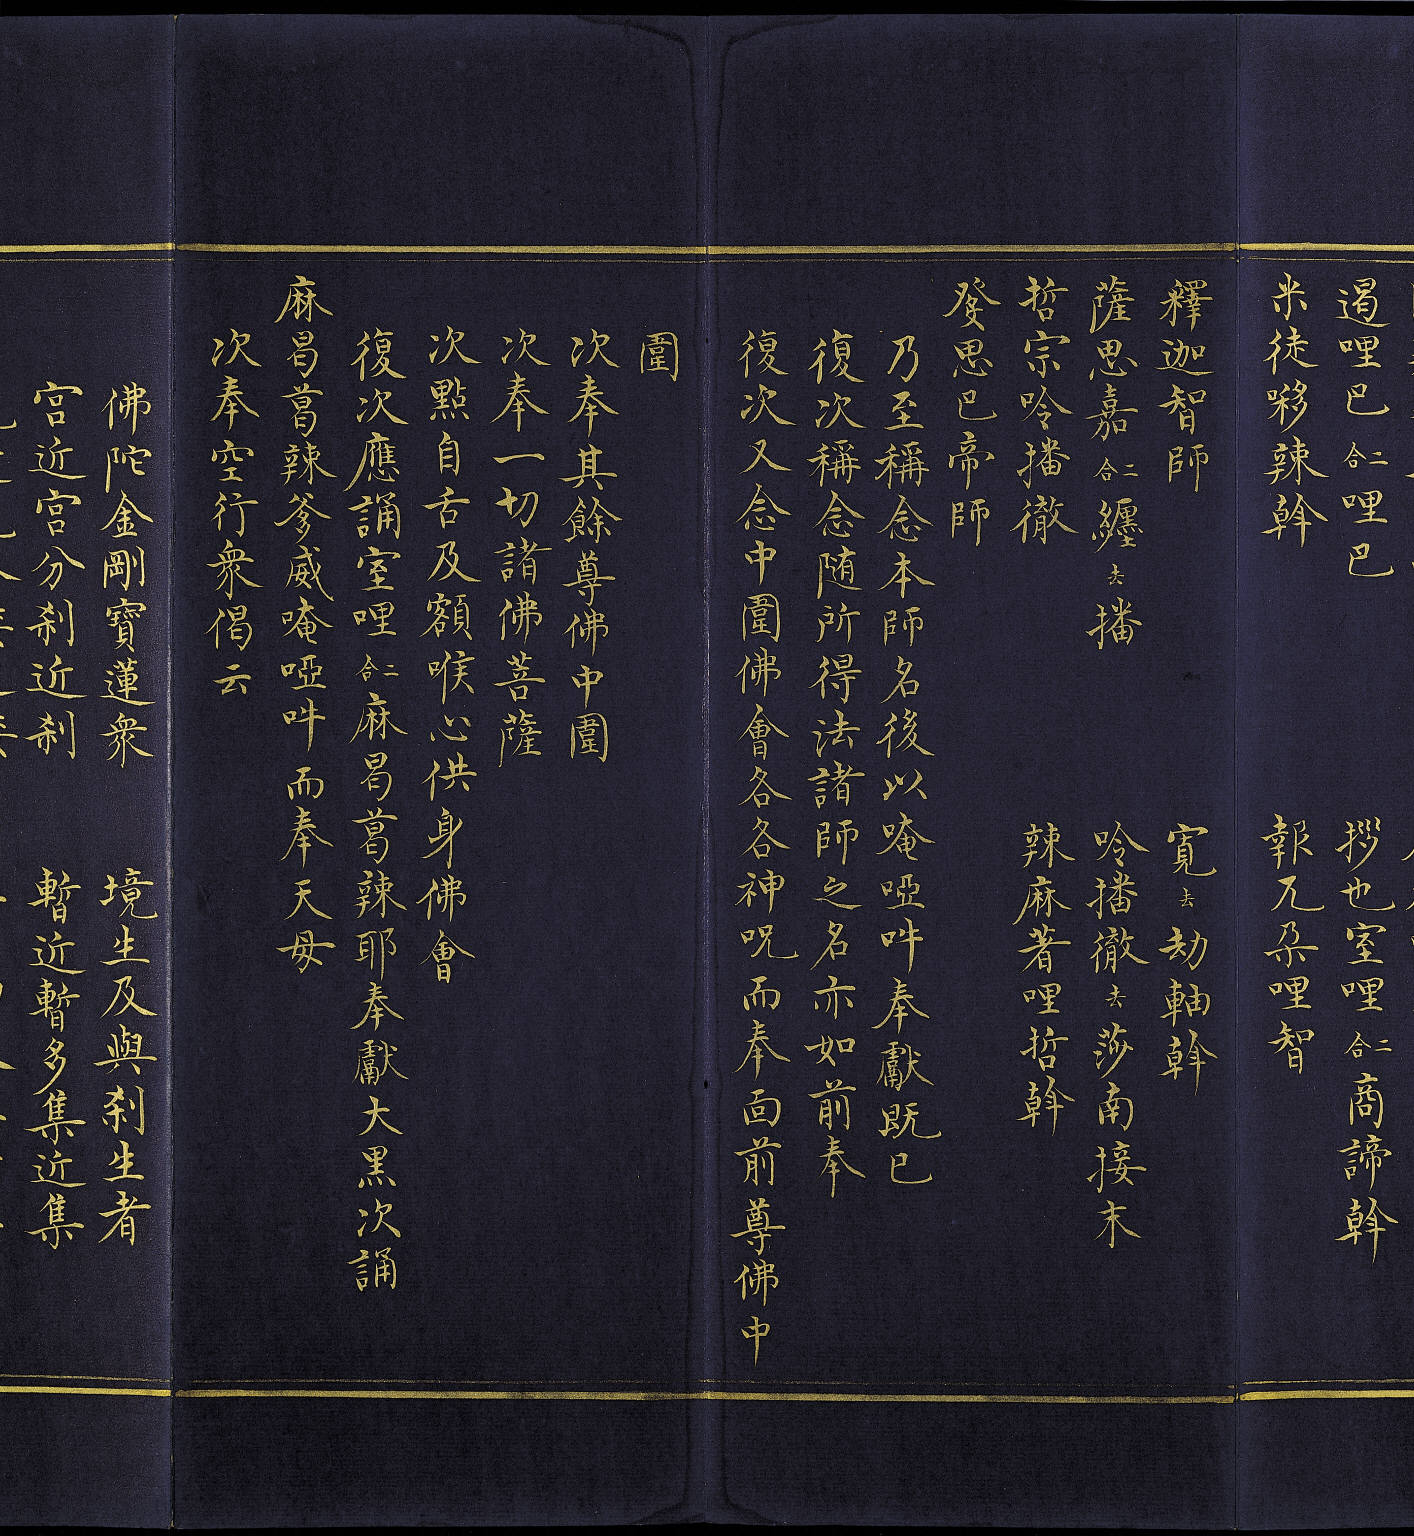 遏哩巴二合哩巴 拶也室哩二合商諦斡
米徒哆辣斡 報兀朶哩智
釋迦智師 寬去劫軸斡
薩思嘉二合纏去播 唥播徹去莎南接末
哲宗唥播徹 辣麻著哩哲斡
癹思巴帝師
乃至稱念本師名後以唵啞吽奉獻既已
復次稱念随所得法諸師之名亦如前奉
復次又念中圍佛會各各神呪而奉面前尊佛中
圍
次奉其餘尊佛中圍
次奉一切諸佛菩薩
次點自舌及額喉心供身佛會
復次應誦室哩二合麻曷葛辣耶奉獻大黑次誦
麻曷葛辣爹威唵啞吽而奉天母
次奉空行衆偈云
佛陀金剛寶蓮衆 境生及與刹生者
宮近宮分刹近刹 暫近暫多集近集